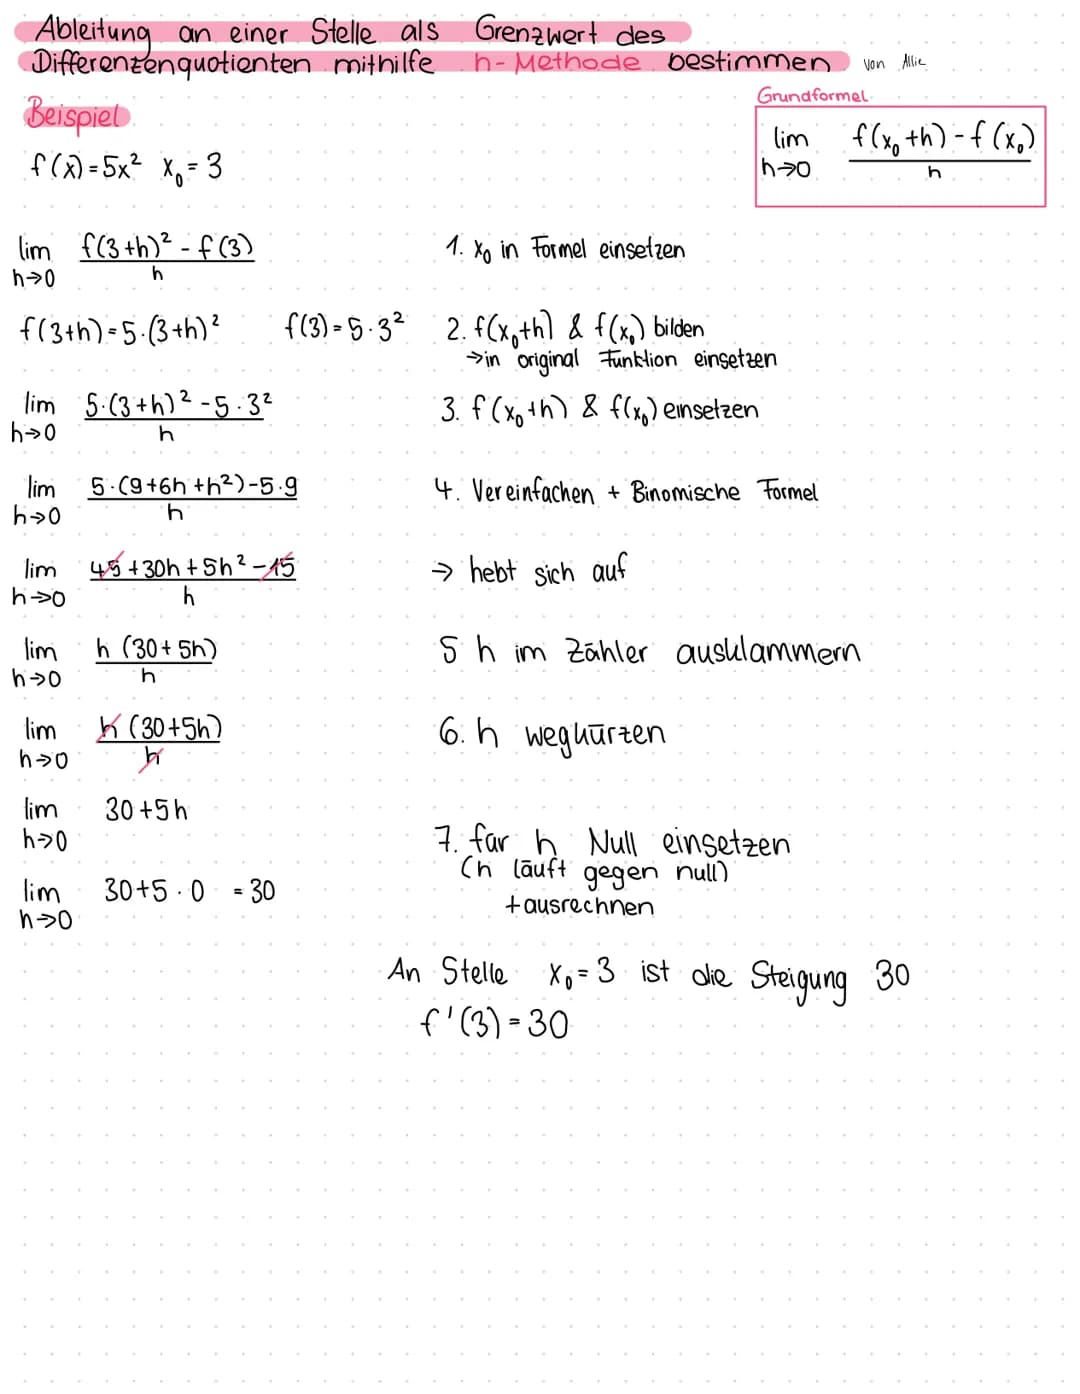 Ableitung an einer Stelle als Grenzwert des
Differenzenquotienten mithilfe h-Methode bestimmen von Allie
Beispiel
Grundformel
lim f(x₀+h)-f(x₀)
h→0 h
f(x)=5x² x₀=3
lim f(3+h)²-f(3)
h→0 h
1. x₀ in Formel einsetzen
f(3+h)=5·(3+h)² f(3)=5·3²
2. f(x₀+h) & f(x₀) bilden
→in original Funktion einsetzen
lim 5·(3+h)²-5·3²
h→0 h
3. f(x₀+h) & f(x₀) einsetzen
lim 5·(9+6h+h²)-5·9
h→0 h
4. Vereinfachen + Binomische Formel
lim 45+30h+5h²-45
h→0 h
→ hebt sich auf
lim h (30+5h)
h→0 h
5 h im Zähler ausklammern
lim h (30+5h)
h→0 h
6. h wegkürzen
lim 30+5h
h→0
7. für h Null einsetzen
(h läuft gegen null)
+ausrechnen
lim 30+5·0 =30
h→0
An Stelle x₀=3 ist die Steigung 30
f'(3)=30